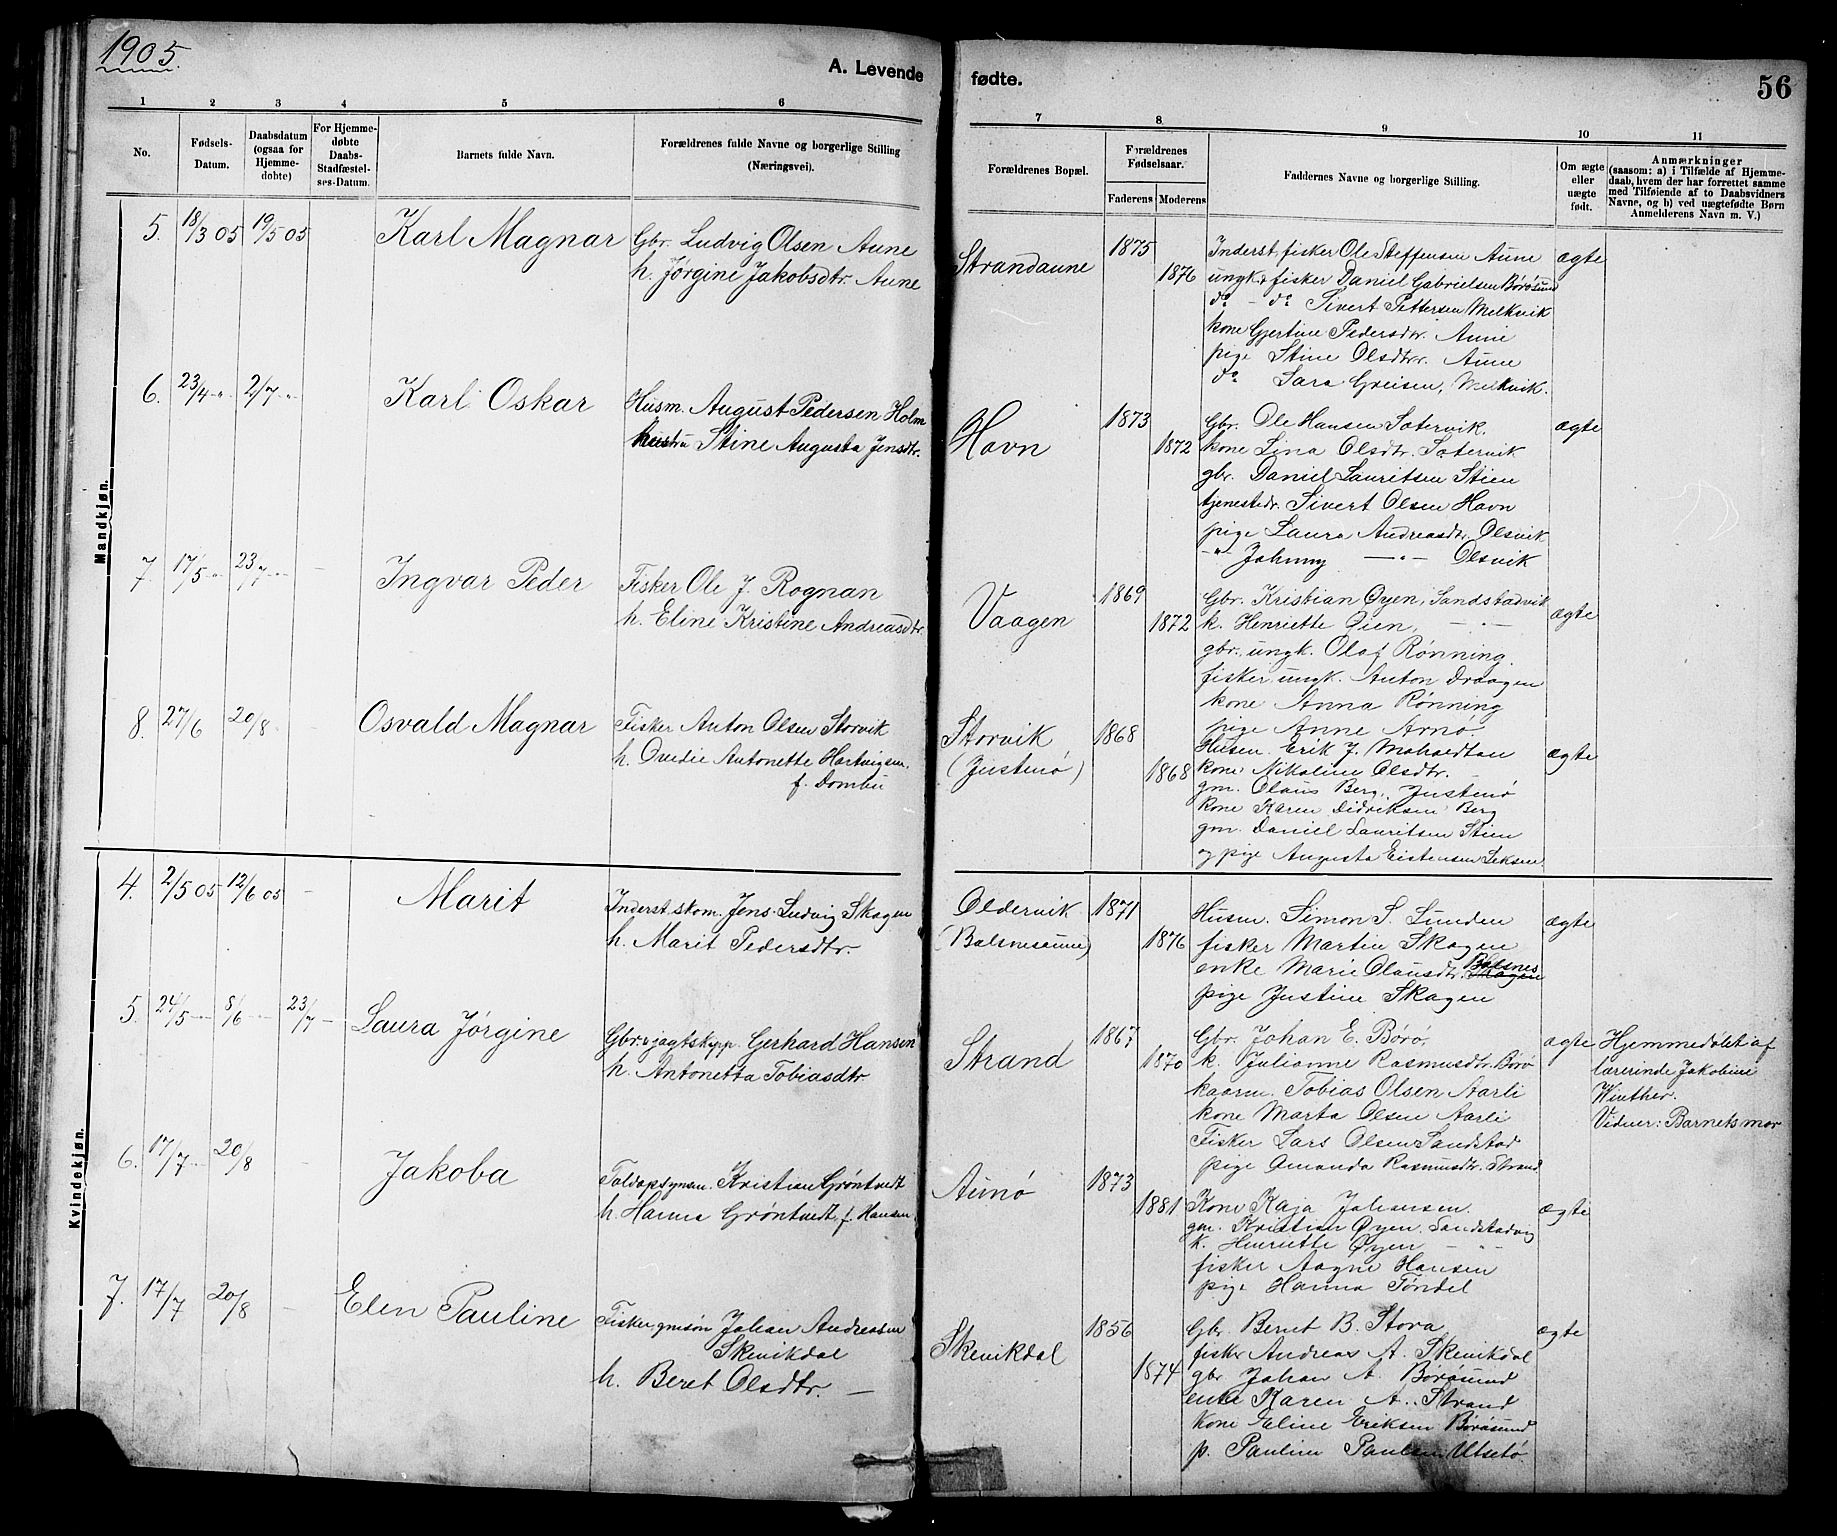 1905.
A. Levende fødte.
56
1 2 3 4 5 6 7 8 9 10 11
No.
Fødsels-
Datum.
Daabsdatum
(ogsaa for
Hjemme-
døbte)
For Hjemme-
døbte
Daabs-
Stadfæstel-
ses-Datum.
Barnets fulde Navn.
Forældrenes fulde Navne og borgerlige Stilling
(Næringsvei).
Forældrenes Bopæl.
Forældrenes
Fødselsaar.
Faderens Moderens
Faddernes Navne og borgerlige Stilling.
Om ægte
eller
uægte
født.
Anmærkninger
(saasom: a) i Tilfælde af Hjemme-
daab, hvem der har forrettet samme
med Tilføiende af to Daabsvidners
Navne, og b) ved uægtefødte Børn
Anmelderens Navn m. V.)
Mandkjøn.
5. 18/3 05 19/5 05 Karl Magnar
Gbr. Ludvig Olsen Aune
h. Jørgine Jakobsdtr. Aune
Strandaune
1875
1876
Inderst, fisker Ole Steffensen Aune
ungk. fisker Daniel Gabrielsen Børøsund
do - do Sivert Pettersen Melkvik
kone Gjertine Pedersdtr. Aune
pige Stine Olsdtr. Aune
do Sara Greisen, Melkvik.
ægte
6. 23/4 -"- 2/7 -"- Karl Oskar
Husm. August Pedersen Holm
hustru Stine Augusta Jensdtr.
Havn
1873
1872
Gbr. Ole Hansen Sætervik.
kone Lina Olsdtr. Sætervik
gbr. Daniel Lauritsen Stien
tjenestedr. Sivert Olsen Havn
pige Laura Andreasdtr. Olsvik
-"- Johnny -"- Olsvik
ægte
7. 17/5 -"- 23/7 -"- - Ingvar Peder
Fisker Ole J. Rognan
h. Eline Kristine Andreasdtr.
Vaagen
1869
1872
Gbr. Kristian Øyen, Sandstadvik
k. Henriette Øien, -"-
gbr. ungk. Olaf Rønning.
fisker ungk. Anton Draagen
kone Anna Rønning
pige Anne Arnø.
ægte
8. 27/6 20/8 - Osvald Magnar
Fisker Anton Olsen Storvik
h. Ovedie Antonette Hartvigsen.
f. Dombu
Storvik
(Jøstenø)
1868
1868
Husm. Erik J.
kone Nikoline Olsdtr.
gm. Olaus Berg, Jøstenø
kone Karen Didriksen Berg
gm. Daniel Lauritsen Stien
og pige Augusta Eistensen
ægte
Kvindekjøn.
4. 2/5 05 12/6 05 - Marit
Inderst skom. Jens Ludvig Skagen
h. Marit Pedersdtr.
Oldervik
(Balsnesaune)
1871
1876
Husm. Simon S. Lunden
fisker Martin Skagen
enke Marie Olausdtr. Balsnes
pige Justine Skagen
ægte
5. 24/5 -- 8/6 -- 23/7 - Laura Jørgine
Gbr. jagtskipp. Gerhard Hansen
h. Antonetta Tobiasdtr
Strand
1867
1870
Gbr. Johan E. Børø.
k. Julianne Rasmusdtr. Børø
kaarm. Tobias Olsen Aarli
kone Marta Olsen Aarli
Fisker Lars Olsen Sandstad
pige Amanda Rasmusdtr. Strand
ægte
Hjemmedøbt af
lærerinde Jakobine
Winther.
Vidner: Barnets mor
6. 17/7 -- 20/8 - Jakoba
Toldopsynsm. Kristian Grøntvedt
h. Hanna Grøntvedt, f. Hansen.
Aunø
1873
1881
Kone Kaja Johansen.
gm. Kristian Øyen, Sandstadvig
k. Henriette Øyen -"-
fisker Aagne Hansen
pige Hanna Tøndel
ægte
7. 17/7 20/8 - Elen Pauline
Fisker gmsøn Johan Andreassen
Skevikdal
h. Beret Olsdtr. -
Skevikdal
1856
1874
Gbr. Bernt B. Storø
fisker Andreas A. Skevikdal
gbr Johan A. Børøsund
enke Karen A. Strand
kone Eline Eriksen Børøsund
p. Pauline Paulsen Utsetø.
ægte